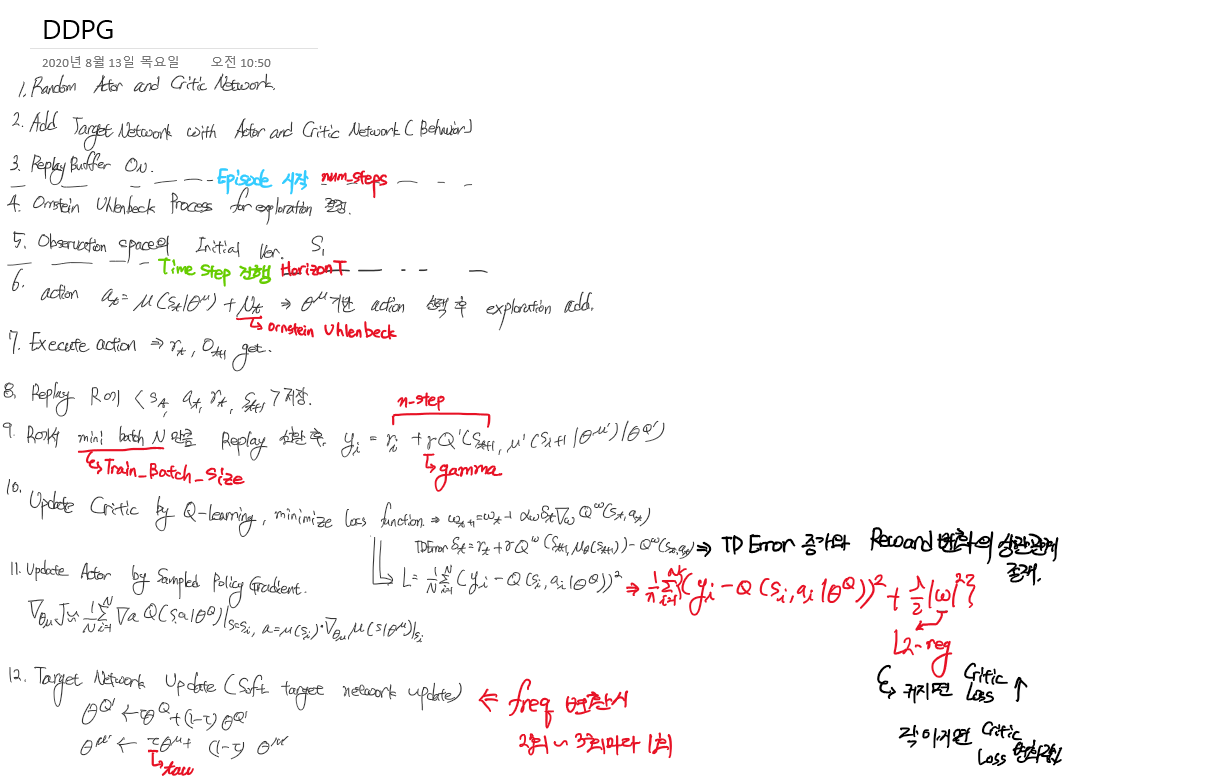 DDPG
2020년 8월 13일 목요일 오전 10:50
1. Random Actor and Critic Network.
2. Add Target Network with Actor and Critic Network (Behavior)
3. Replay Buffer ON.
Episode 시작 num_steps
4. Ornstein Uhlenbeck Process for exploration 결정.
5. Observation space의 Initial Ver. S₁
Time step 진행 Horizon T
6. action aₜ = μ(sₜ|θ^μ) + Nₜ ⇒ θ^μ 기반 action 선택 후 exploration add.
↳ Ornstein Uhlenbeck
7. Execute action ⇒ rₜ, Oₜ₊₁ get.
8. Replay R에 <sₜ, aₜ, rₜ, sₜ₊₁> 저장.
n-step
9. R에서 mini batch N 만큼 Replay 후, yᵢ = rᵢ + γQ'(sₜ₊₁, μ'(sᵢ₊₁|θ^μ')|θ^Q')
↳ Train_Batch_Size
↳ gamma
10. Update Critic by Q-learning, minimize loss function ⇒ ωₜ₊₁ = ωₜ + α_ω δₜ ∇_ω Q^ω(sₜ, aₜ)
TD Error δₜ = rₜ + γQ^ω(sₜ₊₁, μ_θ(sₜ₊₁)) - Q^ω(sₜ, aₜ) ⇒ TD Error 증가와 Reward 변화의 상관관계 존재.
↳ L = 1/N Σᵢ₌₁^N (yᵢ - Q(sᵢ, aᵢ|θ^Q))² ⇒ 1/n Σᵢ₌₁^N {(yᵢ - Q(sᵢ, aᵢ|θ^Q))² + λ/2 |ω|²}
L2-reg
↳ 커지면 Critic Loss ↑
작아지면 Critic Loss
11. Update Actor by Sampled Policy Gradient.
∇_θμ J ≈ 1/N Σᵢ₌₁^N ∇a Q(s,a|θ^Q)|s=sᵢ, a=μ(sᵢ) · ∇_θμ μ(s|θ^μ)|sᵢ
12. Target Network Update (Soft target network update) ⇐ freq 변환시
2회 ~ 3회마다 1회
θ^Q' ← τθ^Q + (1-τ) θ^Q'
θ^μ' ← τθ^μ + (1-τ) θ^μ'
↳ tau